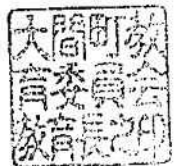 大間町教
育委員会
教育長印